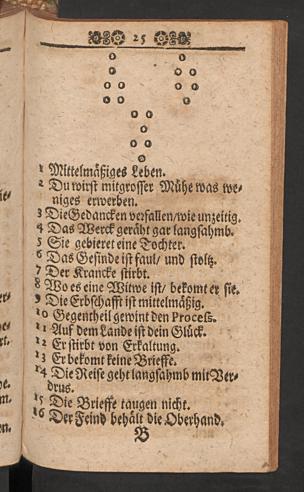 25
1 Mittelmäßiges Leben.
2 Du wirst mit grosser Mühe was we-
niges erwerben.
3 Die Gedancken verfallen/ wie unzeitig.
4 Das Werck geräht gar langsahmb.
5 Sie gebieret eine Tochter.
6 Das Gesinde ist faul/ und stoltz.
7 Der Krancke stirbt.
8 Wo es eine Witwe ist/ bekomt er sie.
9 Die Erbschafft ist mittelmäßig.
10 Gegentheil gewint den Process.
11 Auf dem Lande ist dein Glück.
12 Er stirbt von Erkaltung.
13 Er bekomt keine Brieffe.
14 Die Reise geht langsahmb mit Ver-
drus.
15 Die Brieffe taugen nicht.
16 Der Feind behält die Oberhand.
B